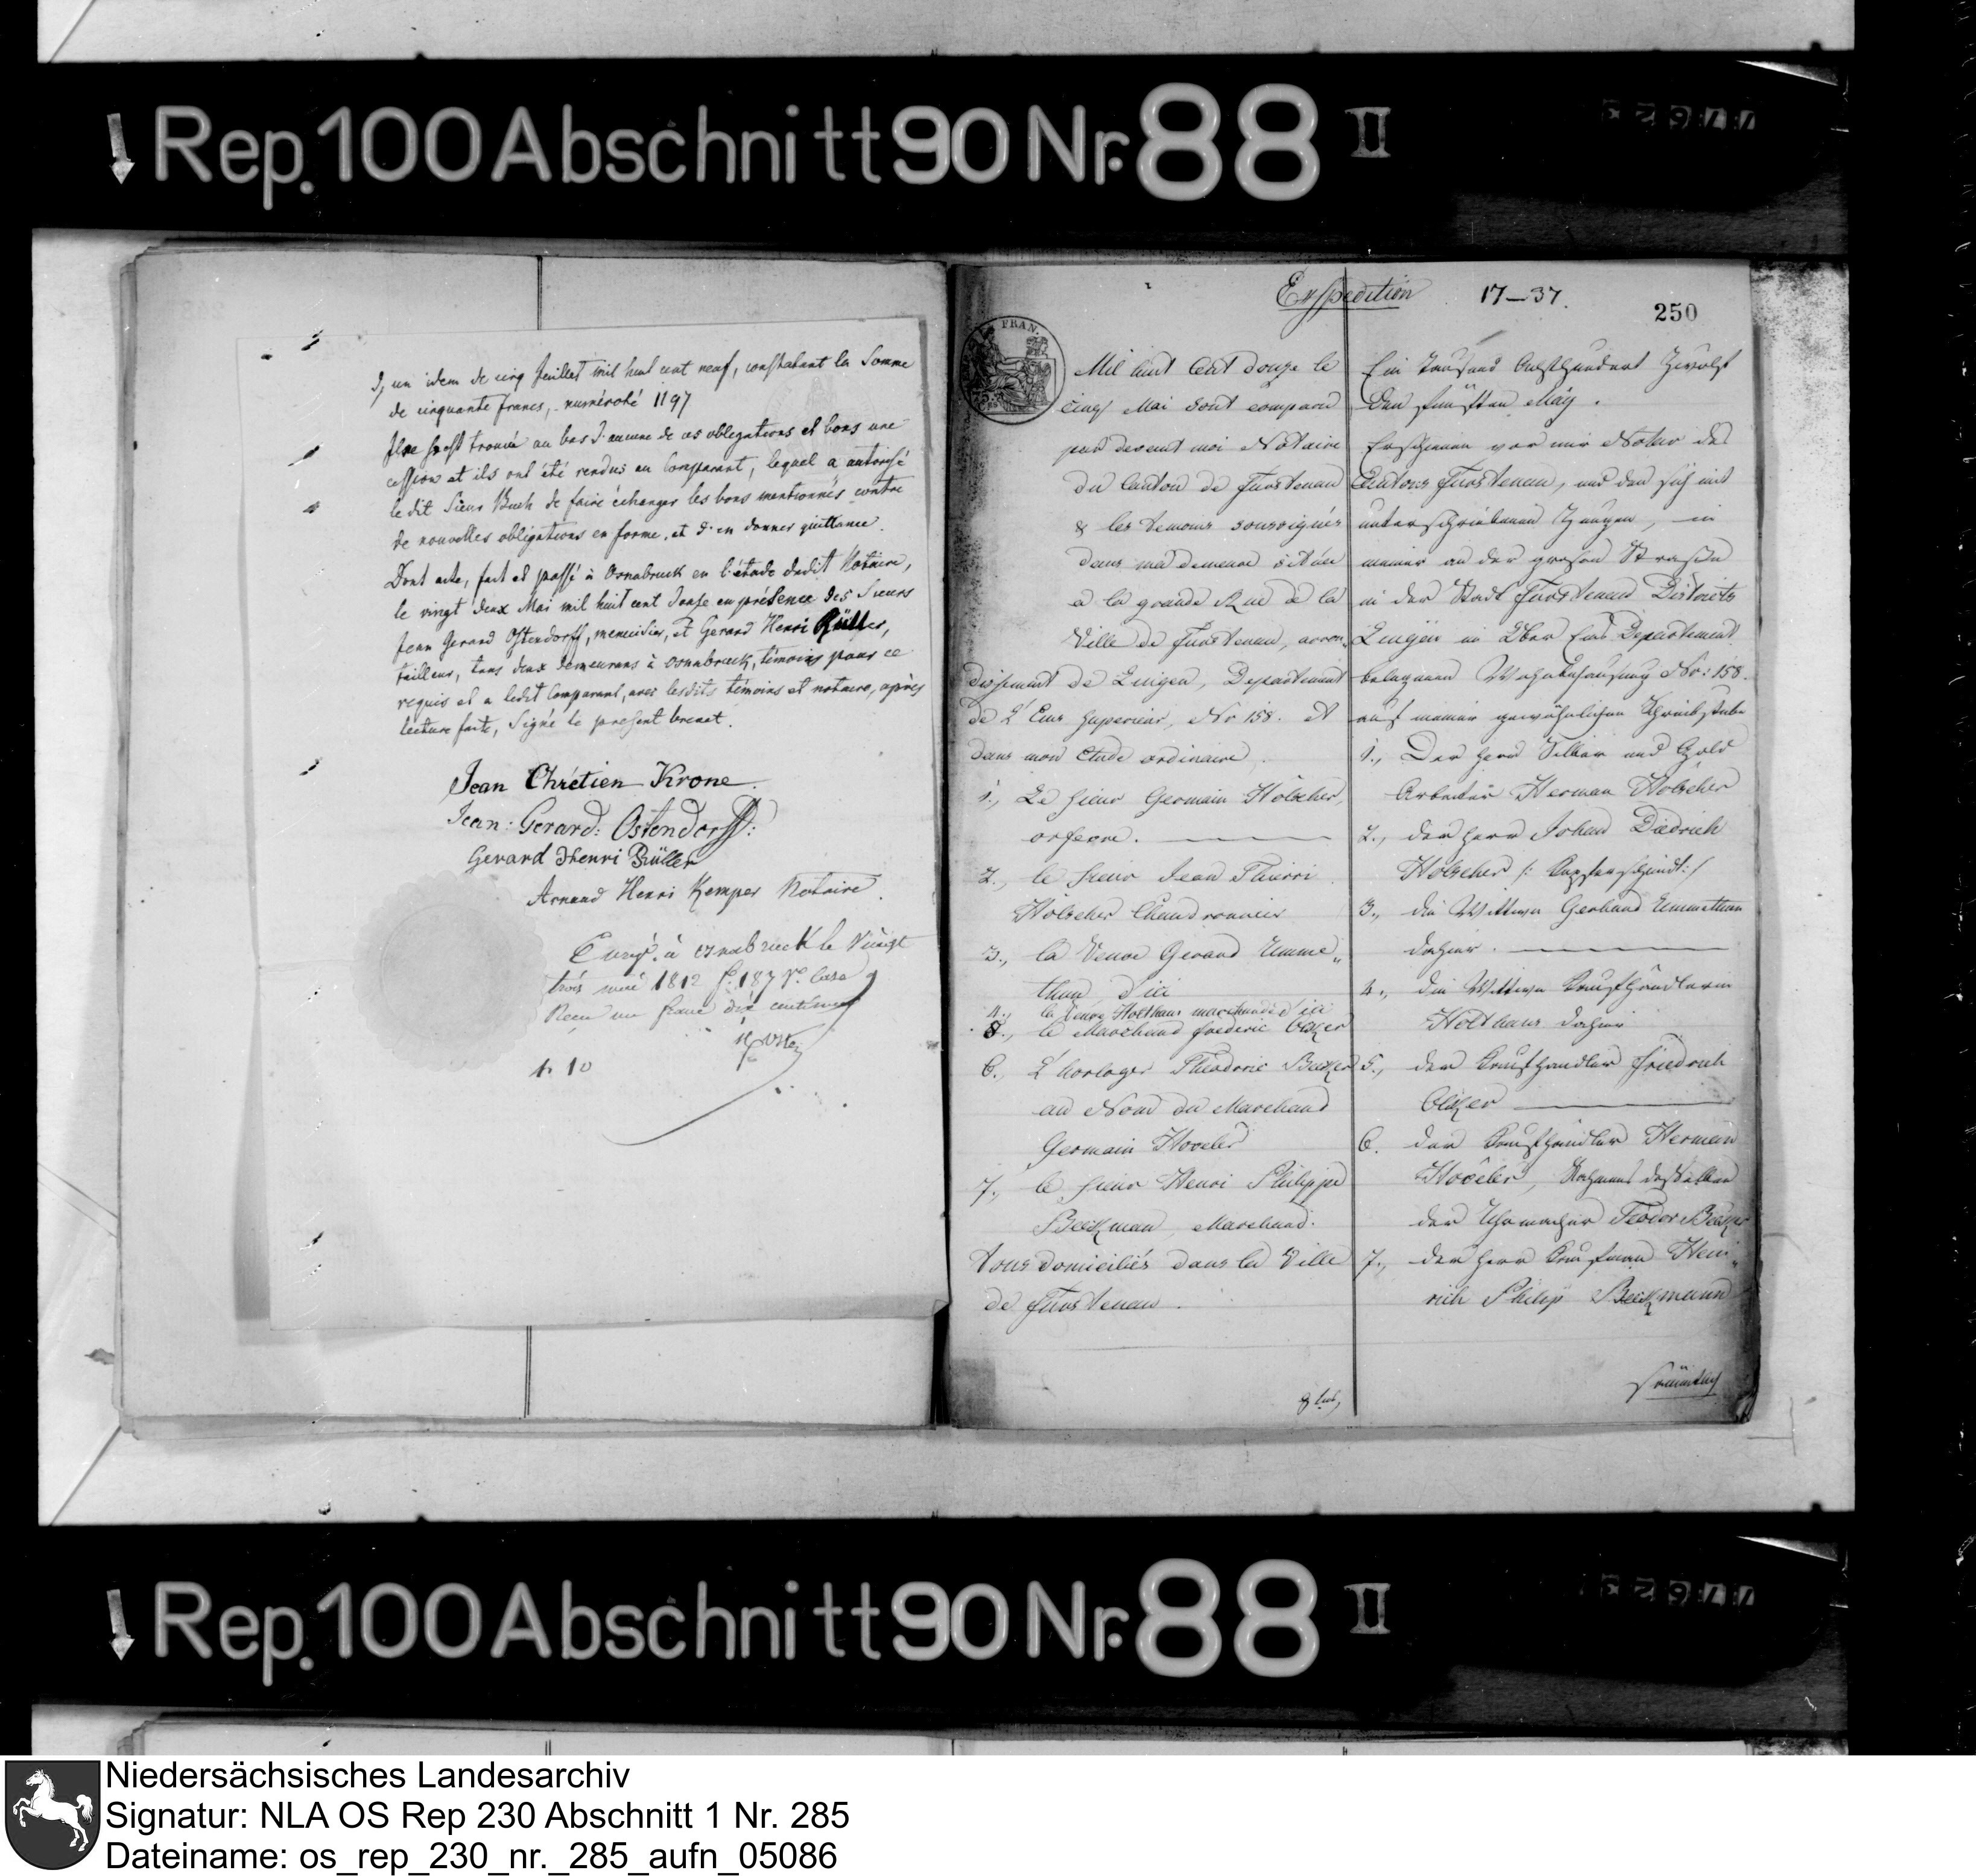 Rep. 100 Abschnitt 90 Nr. 88 II
d, un idem de cinq Juillet mil huit cent neuf, constatant la Somme
de cinquante francs, numéroté 1197
trouvé au bas d'aucune de ces obligations et bons une
cession et ils ont été rendus au Comparant, lequel a autorisé
le dit Sieur Buch de faire échanger les bons mentionnés contre
de nouvelles obligations en forme, et d'en donner quittance.
Dont acte, fait et passé à Osnabruck en l'étude dudit Notaire,
le vingt deux Mai mil huit cent douze en présence des Sieurs
Jean Gerard Ostendorff, menuisier, et Gerard Henri Rüller,
tailleur, tous deux demeurans à Osnabruck, témoins pour ce
requis et a ledit Comparant, avec lesdits témoins et notaire, après
lecture faite, Signé le present brevet.
Jean Chrétien Krone.
Jean: Gerard: Ostendorff:
Gerard Henri Rüller
Arnaud Henri Kemper Notaire.
à Osnabruck le Vingt
trois mai 1812 f. 187 Vo. Case
Reçu un franc dix centimes
1. 10
Expedition 17-37.
250
FRAN.
Mil huit Cent douze le
cinq Mai sont comparu
par devent moi Notaire
du Canton de Furstenau
& les temoins soussignés
dans ma demeure située
a la grande Rue de la
Ville de Furstenau, arron„
dissement de Lingen, Departement
de L'Ems Superieur, No 158. et
dans mon Etude ordinaire.
1., Le Sieur Germain Hölscher,
orfevre.
2., le Sieur Jean Thierri
Hölscher Chaudronnier
3., la Veuve Gerard Umme„
than d'ici
4., la Veuve Holthaus marchande d'ici
5., le Marchand frederic
6., L'horloger Theodoric
au Nom du Marchand
Germain
7., le Sieur Henri Philippe
Beckman, Marchand.
tous domiciliés dans la Ville
de Furstenau.
Ein Tausend Achthundert Zwölf
den fünften May.
Erschienen vor mir Notar des
Cantons Furstenau, und den sich mit
unterschriebenen Zeugen, in
meiner an der grosen Strasse
in der Stadt Furstenau Districts
Lingen im Ober Ems Departement
belegenen Wohnbehausung No: 158.
auf meiner gewöhnlichen Schreibstube
1., Der Herr Silber und Gold
Arbeiter Herman Hölscher
2., der Herr Johan Diedrich
Hölscher /: Kupferschmidt :/
3., die Wittwe Gerhard Ummethun
dahier.
4., die Wittwe Kaufhändlerin
Holthaus dahier
5., der Kaufhändler Friedrich
6. der Kaufhändler Herman
Namens desselben
der Uhrmacher Teodor
7., der Herr Kaufman Hein„
rich Philip Beckmann
sämmtlich
Rep. 100 Abschnitt 90 Nr. 88 II
Niedersächsisches Landesarchiv
Signatur: NLA OS Rep 230 Abschnitt 1 Nr. 285
Dateiname: os_rep_230_nr._285_aufn_05086